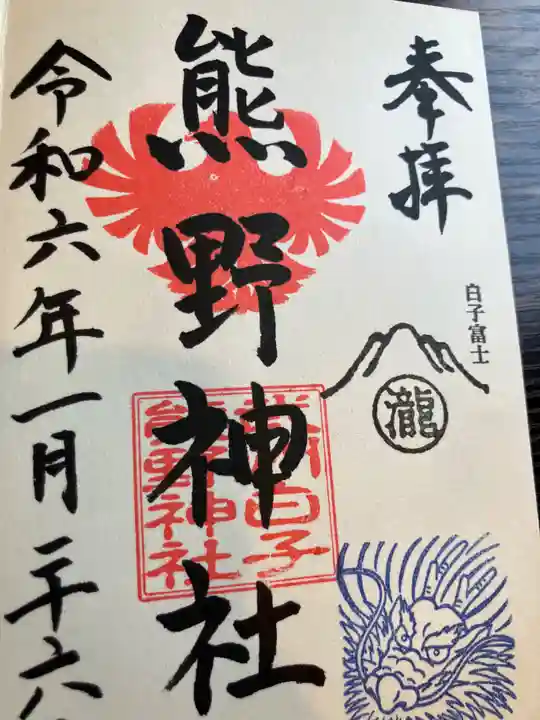 奉拝
白子富士
瀧
熊野神社
武州白子
熊野神社
令和六年一月二十六